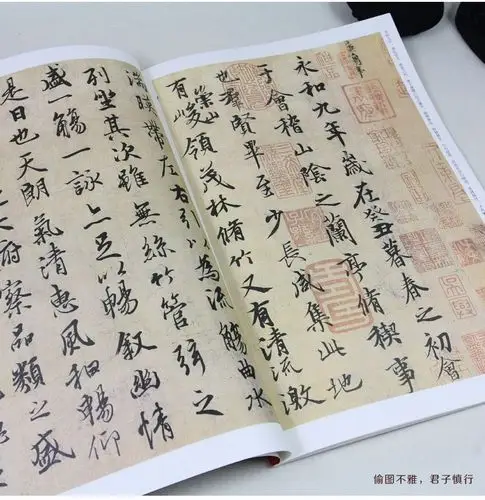 永和九年歲在癸丑暮春之初會
于會稽山陰之蘭亭脩稧事
也群賢畢至少長咸集此地
有崇山峻領茂林脩竹又有清流激
湍暎帶左右引以為流觴曲水
列坐其次雖無絲竹管弦之
盛一觴一詠亦足以暢敘幽情
是日也天朗氣清惠風和暢仰
之大俯察品類之盛
偷图不雅，君子慎行